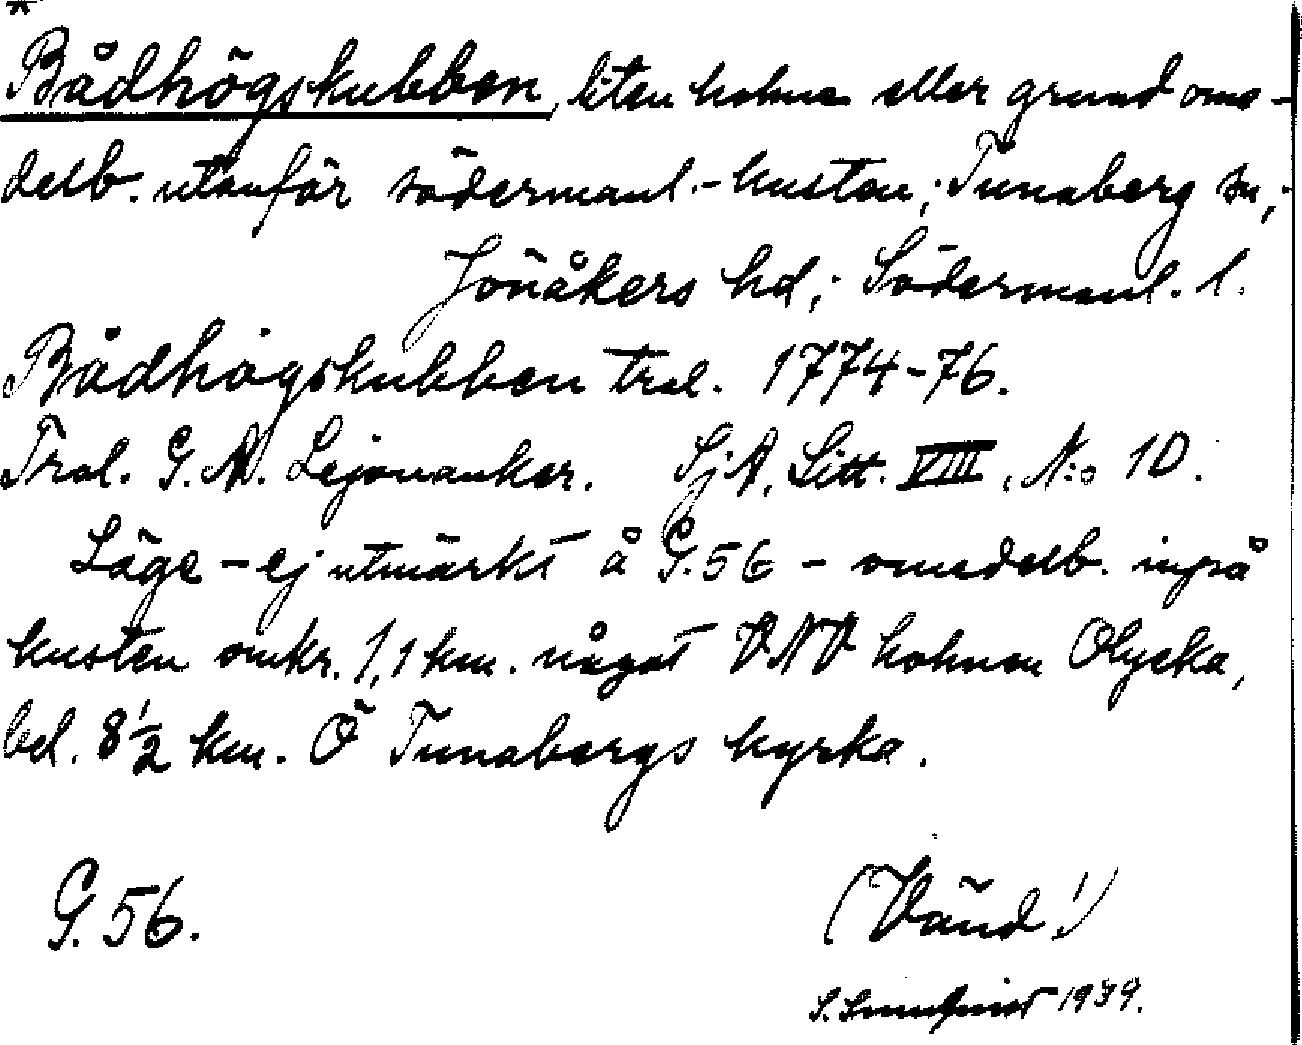 Bådhögskubben, liten holme eller grund ome-
delb. utanför södermanl.-kusten; Tunaberg sn,;
Jönåkers hd; Södermanl. l.
Bådhögskubben trol. 1774-76.
Trol. G. A. Lejonanker. SjA, Litt. VIII, N:o 10.
Läge - ej utmärkt å G.56 - omedelb. inpå
kusten omkr. 1,1 km. något VNV holmen Olycka,
bel. 8½ km. Ö Tunabergs kyrka.
G. 56.
(Vänd!)
S. 1939.